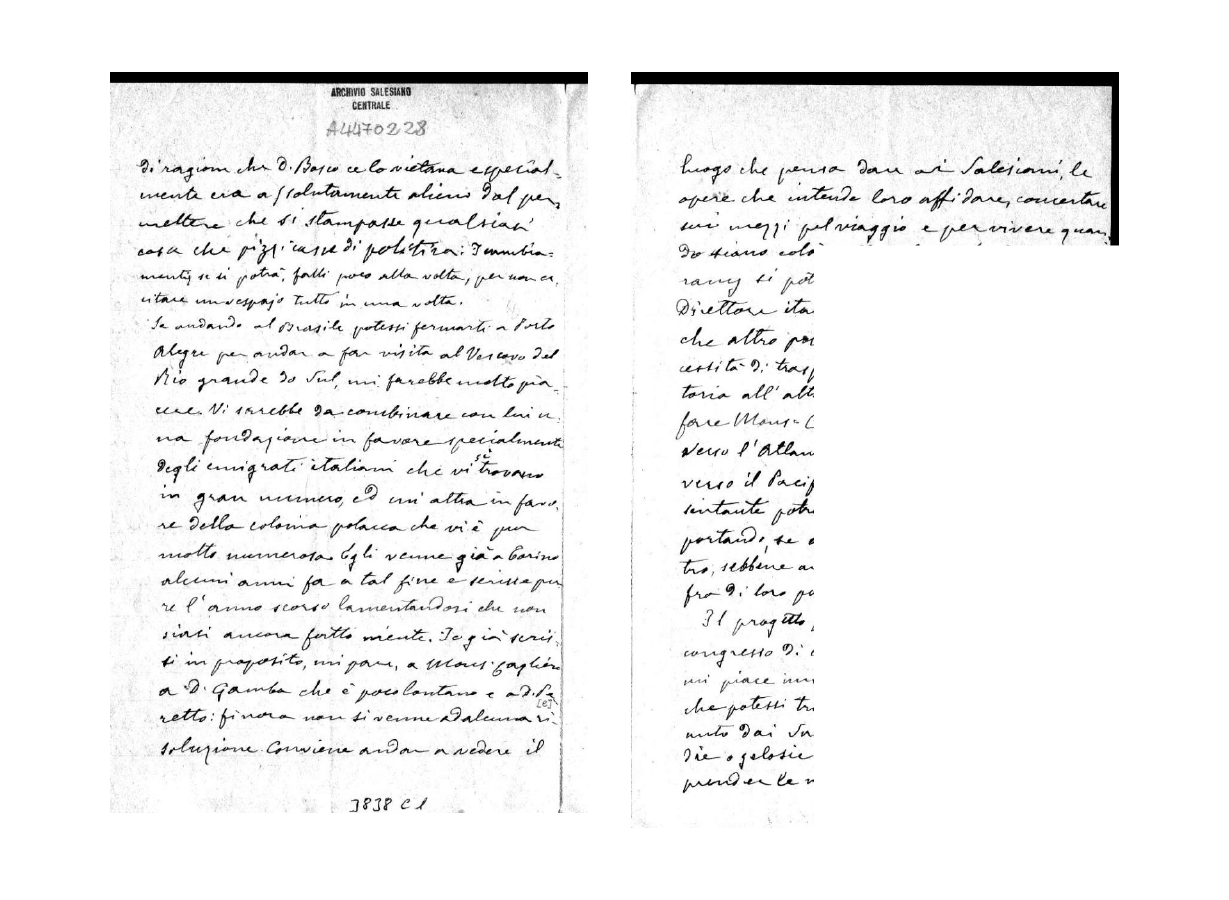 ARCHIVIO SALESIANO
CENTRALE
A4470228
di ragion che D. Bosco ce lo vietava e special-
mente era assolutamente alieno dal per-
mettere che si stampasse qualsiasi
cosa che pizzicasse di politica: I cambia-
menti, se si potrà, falli poco alla volta, per non ec-
citare un vespajo tutto in una volta.
Se andando al Brasile potessi fermarti a Porto
Alegre per andar a far visita al Vescovo del
Rio grande do Sul, mi farebbe molto pia-
cere. Vi sarebbe da combinare con lui u-
na fondazione in favore specialmente
degli emigrati italiani che vi si trovano
in gran numero, ed un'altra in favo-
re della colonia polacca che vi è pur
molto numerosa. Egli venne già a Torino
alcuni anni fa a tal fine e scrisse pu-
re l'anno scorso lamentandosi che non
siasi ancora fatto niente. Io già scris-
si in proposito, mi pare, a Mons. Cagliero
a D. Gamba che è poco lontano e a D. Pe
retto: finora non si venne ad alcuna ri-
[e]
soluzione. Conviene andar a vedere il
3838 C 1
luogo che pensa dare ai Salesiani, le
opere che intende loro affidare, concertare
sui mezzi pel viaggio e per vivere quan-
do siano colà
si pot
Direttore ita
che altro po
cessità di trasp
toria all'alt
fare Mons.
verso l'Atlan
verso il Pacif
sentante potr
portando, se
tro, sebbene a
fra di loro po
Il progetto
congresso di
mi piace
che potessi tr
unto dai Sa
die o gelosie
prender le